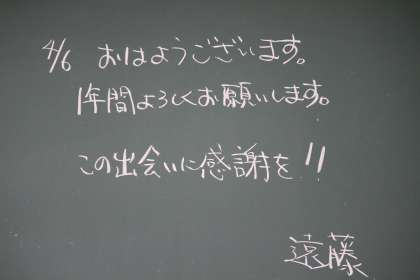 4/6 おはようございます。
1年間よろしくお願いします。
この出会いに感謝を!!
遠藤